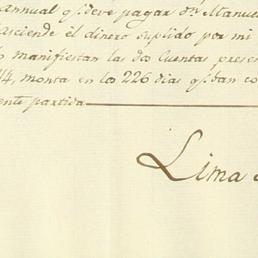 annual q.e deve pagar Dn. Manuel
asciende el dinero suplido por mi
lo manifiestan las dos Cuentas presen
14, monta en los 226 dias q.e dan co
ente partida
Lima